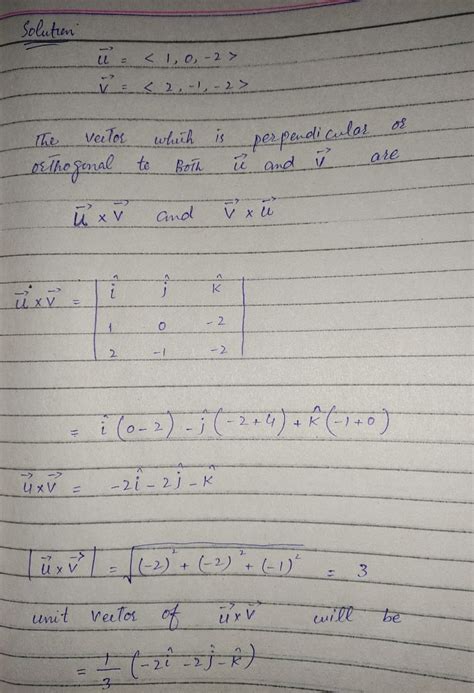 Solution
u⃗ = < 1, 0, -2 >
v⃗ = < 2, -1, -2 >
The vector which is perpendicular or
orthogonal to Both u⃗ and v⃗ are
u⃗ × v⃗ and v⃗ × u⃗
u⃗ × v⃗ = | î ĵ k̂ |
| 1 0 -2 |
| 2 -1 -2 |
= î (0-2) - ĵ (-2+4) + k̂ (-1+0)
u⃗×v⃗ = -2î - 2ĵ - k̂
|u⃗ × v⃗| = √((-2)² + (-2)² + (-1)²) = 3
unit vector of u⃗×v⃗ will be
= 1/3 (-2î - 2ĵ - k̂)